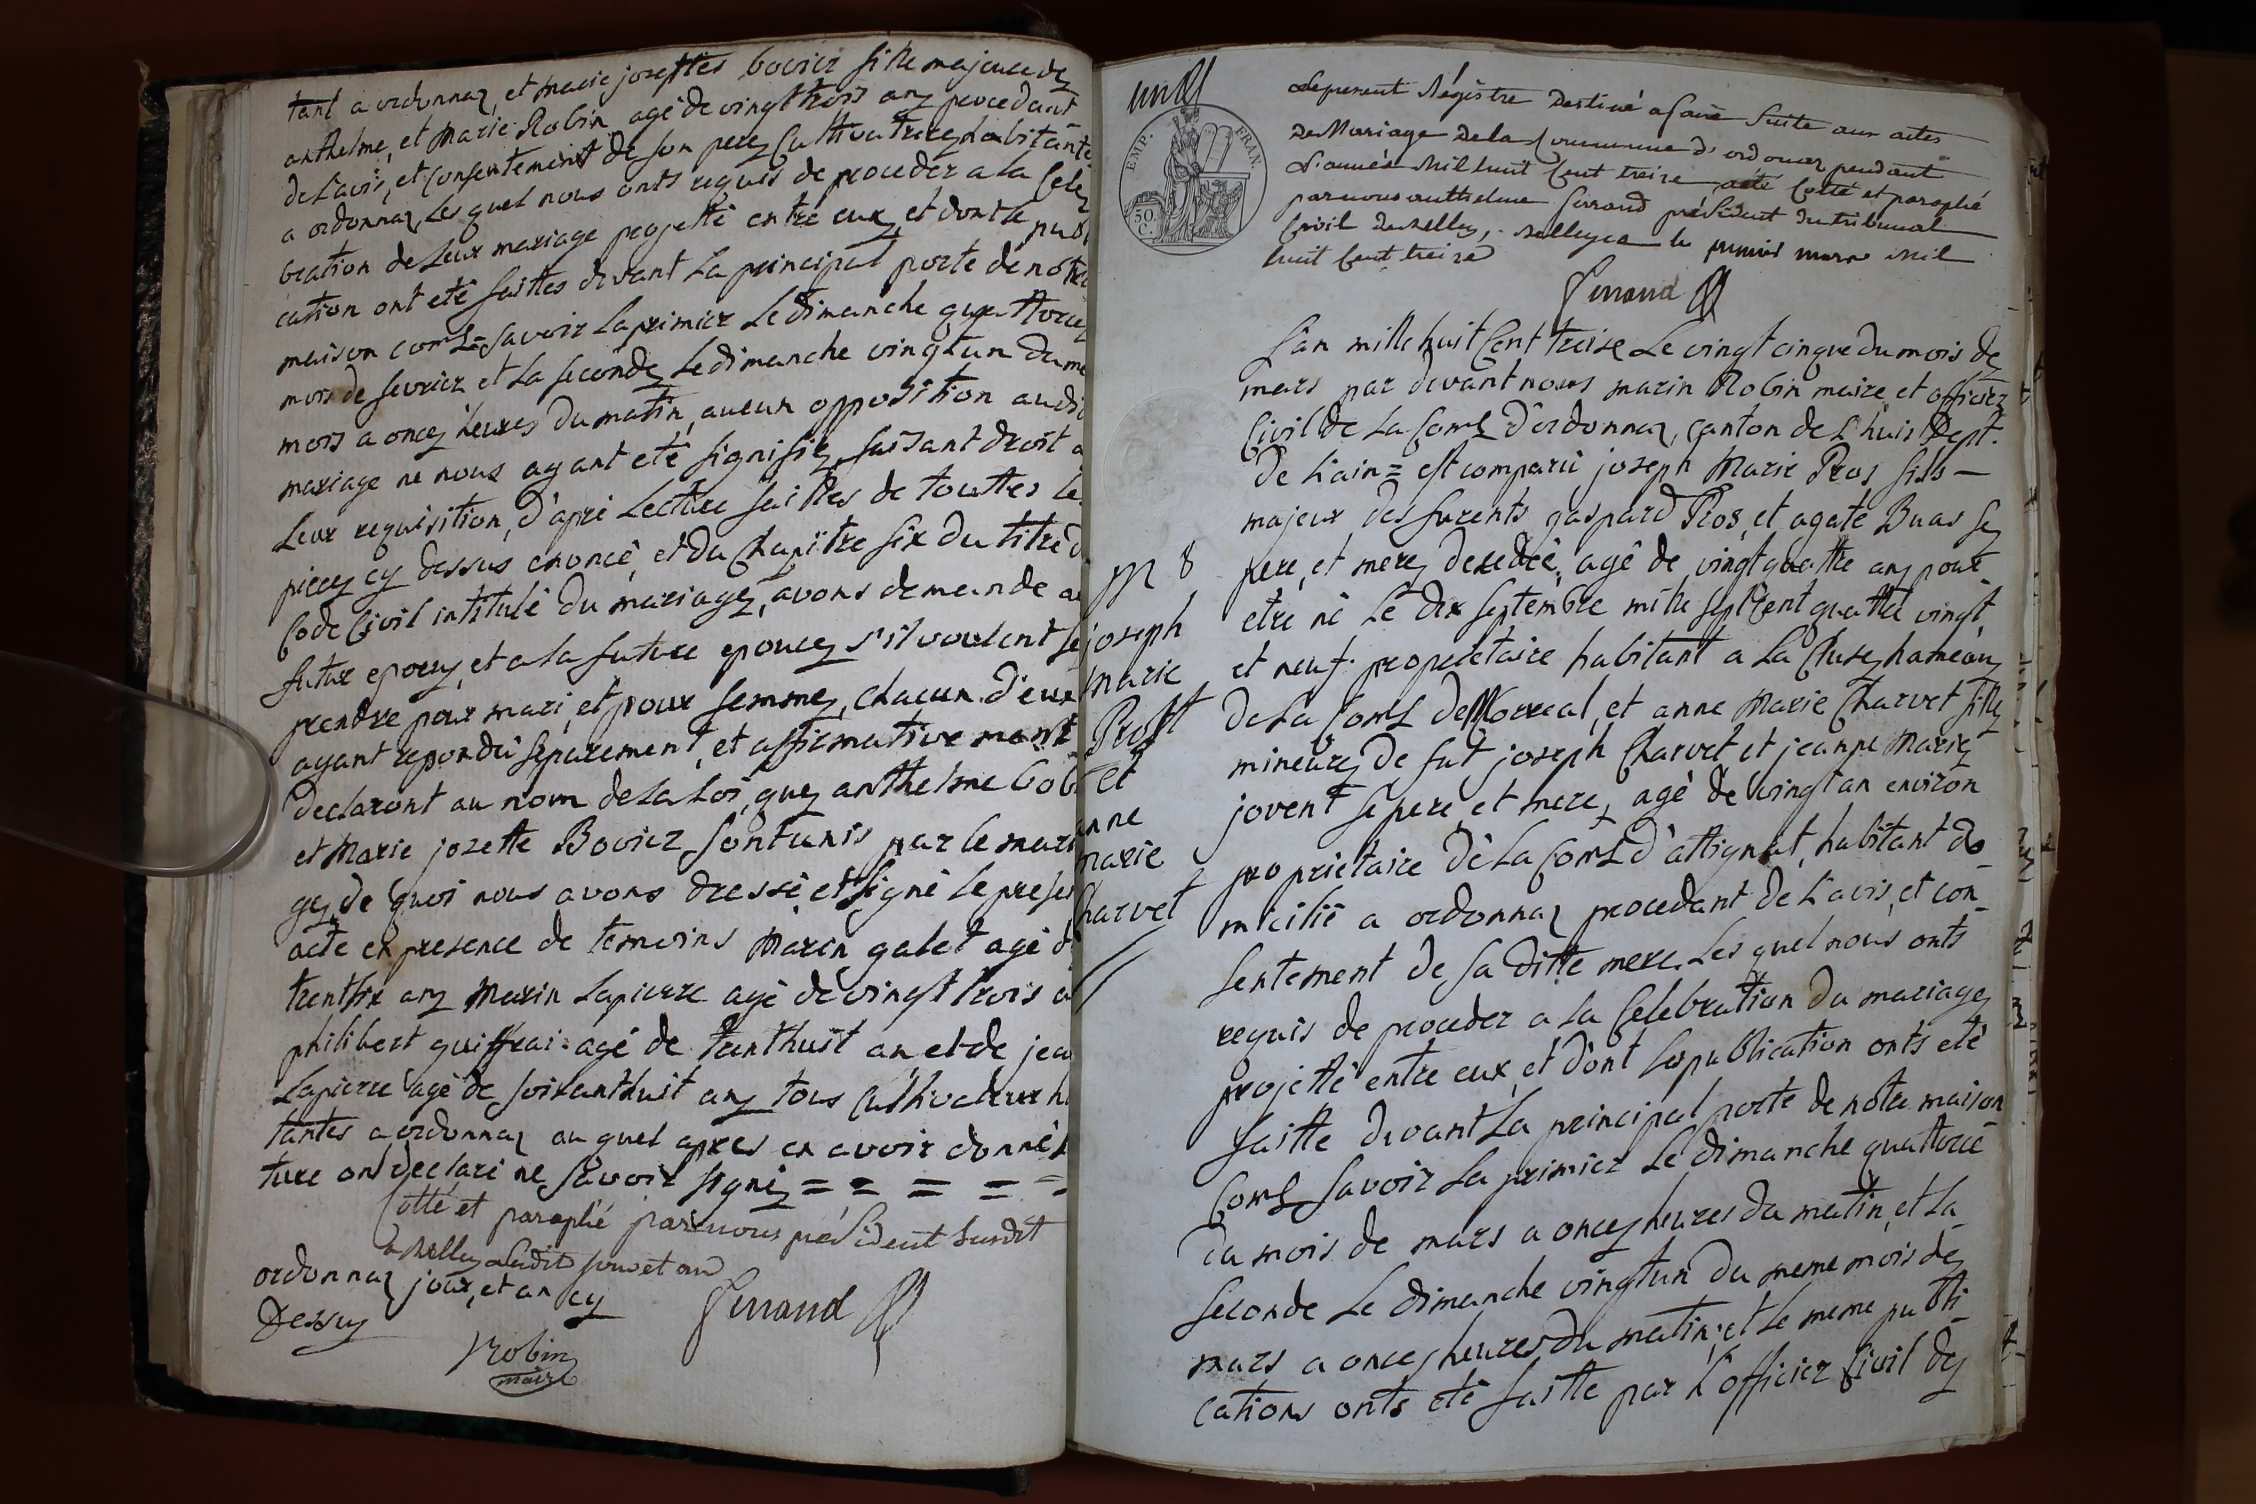 tant a ordonnaz, et marie josephtes bovier fille majeure de
anthelme, et Marie Robin agé de vingt trois anz procedant
de L'avis, et consentement de son pere Cultivatrice habitante
a ordonnaz, Les quel nous onts requis de proceder a la Cele
bration de Leur mariage projetté entre eux, et dont la publi
cation ont eté faittes devant La principal porte de notre
maison comL= savoir La premier Le dimanche quattorze
mois de fevrier et La seconde Le dimanche vingt un du me
mois a onze heures du matin, aucun opposition audit
mariage ne nous ayant eté signifié, faisant droit a
Leur requisition, d'apré Lecture faittes de touttes Les
pieces cy dessus enoncé, et du Chapitre six du titre d
Code Civil intitulé du mariage, avons demande au
futur epoux, et a la future epouce s'il voulent se
prendre pour mari, et pour femme, chacun d'eux
ayant repondû separement, et affirmative ment
Declaront au nom de La Loi, que anthelme bob
et Marie jozette Bovier sont unis par le maria
ge, de quoi nous avons dressé, et signé Le presen
acte en presence de temoins Marin galet agé d
trentsix anz Marin Lapierre agé de vingt trois a
philibert guiffrai agé de trenthuit an et de jea
Lapierre agé de soixanthuit anz tous Cultivateur h
tantes a ordonnaz au quel apres en avoir donné L
ture ont declaré ne savoir signé = = = = =
Cotté et paraphé par nous président susdit
a Belley Ledit jour et an
ordonnaz jour, et an cy
Dessus
Ferrand
Robin
maire
un
EMP. FRAN.
50 C.
Le present Régistre Destiné a faire Suite aux actes
De Mariage De la Commune d'ordonaz pendant
L'année Mil huit Cent treize a été Cotté et paraphé
par nous anthelme ferrand président du tribunal
Civil de Belley, Belley ce le premier mars Mil
huit Cent treize
Ferrand
L'an mille huit Cent treise Le vingt cinque du mois de
mars par devant nous marin Robin maire, et officier
Civil de La ComL D'ordonnaz, canton de L'huis Dept.
De L'ain = est comparû joseph Marie Pros fils
majeur des furents gaspard Pros, et agate Buas se
pere, et mere decedéé, agé de vingt quattre anz pour
etre né Le dix septembre mille sept cent quattre vingt
et neuf. proprietaire habitant a La Cluse, hameau
De La ComL De Morreal, et anne Marie Charvet fille
mineure, De fut joseph Charvet et jeanne Marie
jovent se pere, et mere, agé de vingt an environ
proprietaire De La ComL d'attignat, habitant do
micilié a ordonnaz procedant de L'avis, et con
sentement de sa ditte mere. Les quel nous onts
requis de proceder a La Celebration du mariage
projetté entre eux, et dont Les publication onts eté
faitte devant La principal porte de notre maison
ComL savoir La premier Le dimanche quattorze
du mois de mars a onze heures du matin, et La
seconde Le dimanche vingt un du meme mois de
mars a onze heures du matin, et Le meme publi
cations onts eté faitte par L'officier Civil de
M 8
joseph
Marie
Prost
et
anne
marie
Charvet